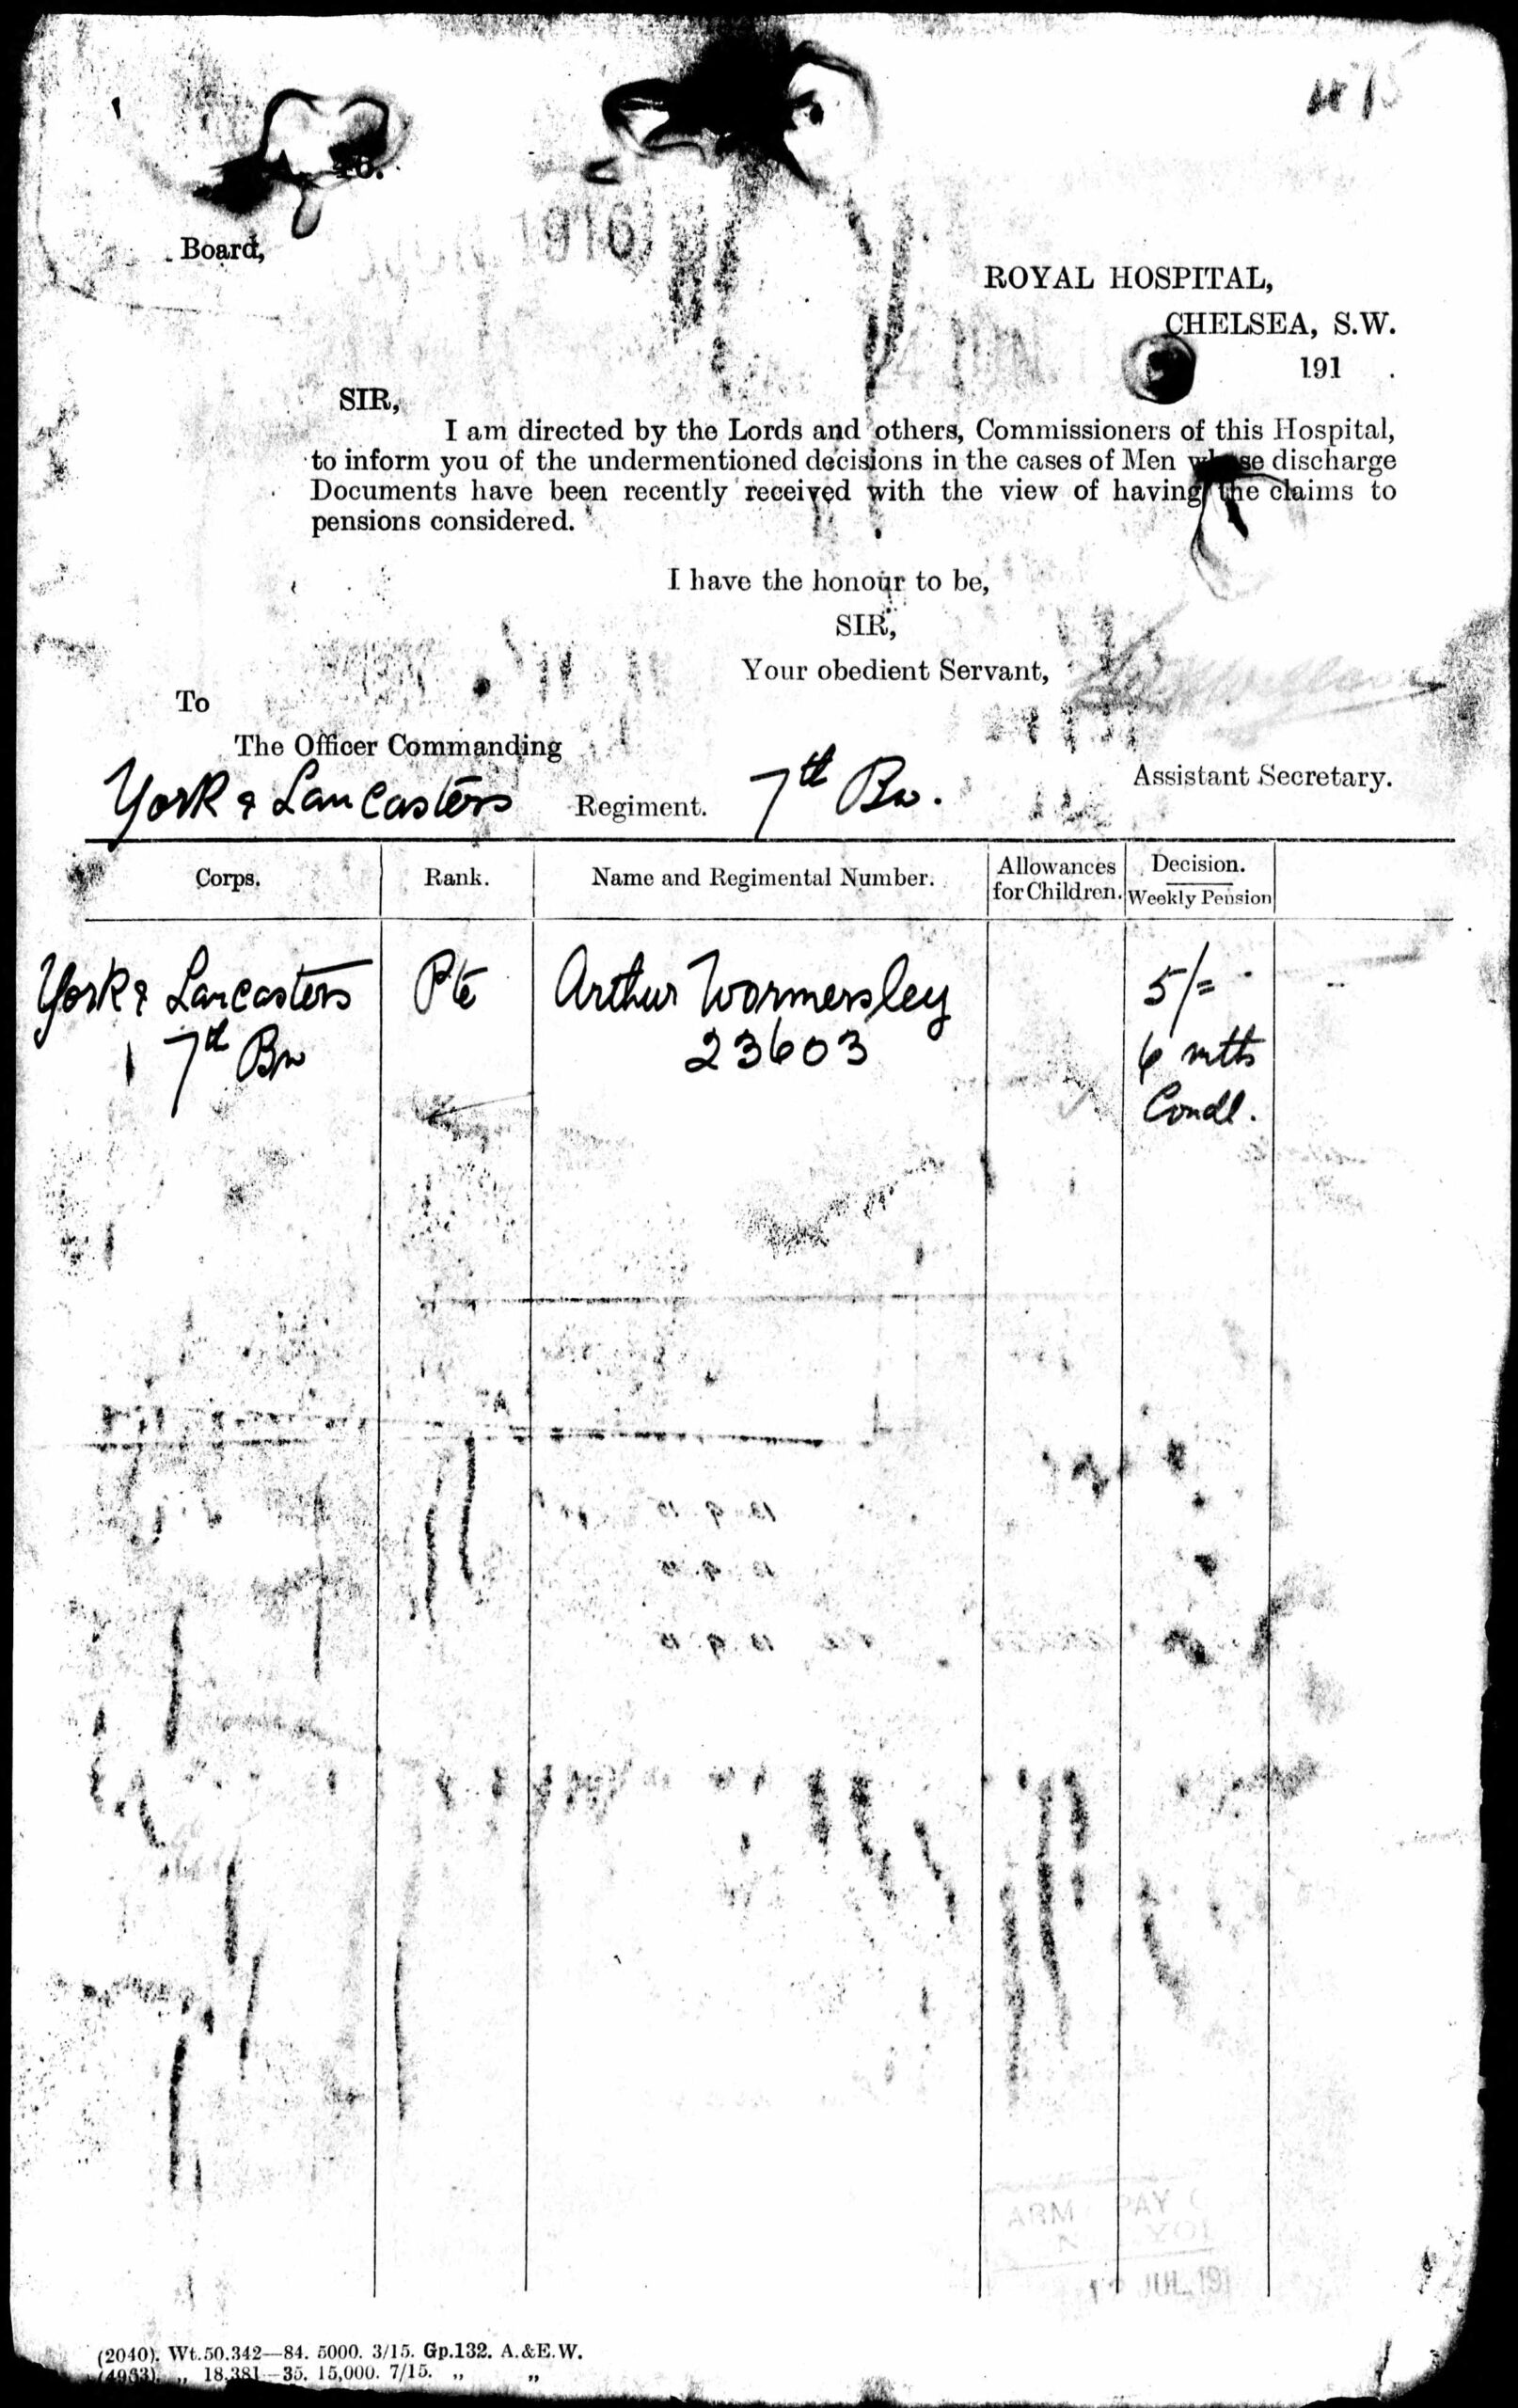 1916
Board,
ROYAL HOSPITAL,
CHELSEA, S.W.
191 .
SIR,
I am directed by the Lords and others, Commissioners of this Hospital,
to inform you of the undermentioned decisions in the cases of Men whose discharge
Documents have been recently received with the view of having the claims to
pensions considered.
I have the honour to be,
SIR,
Your obedient Servant,
To
The Officer Commanding
Assistant Secretary.
York & Lancasters Regiment. 7th Bn.
Corps. Rank. Name and Regimental Number. Allowances for Children. Decision. Weekly Pension
York & Lancasters Pte Arthur Wormersley 5/=
7th Bn 23603 6 mths
Condl.
JUL 191
(2040). Wt.50.342—84. 5000. 3/15. Gp.132. A.&E.W.
(4963). „ 18.381—35. 15,000. 7/15. „ „